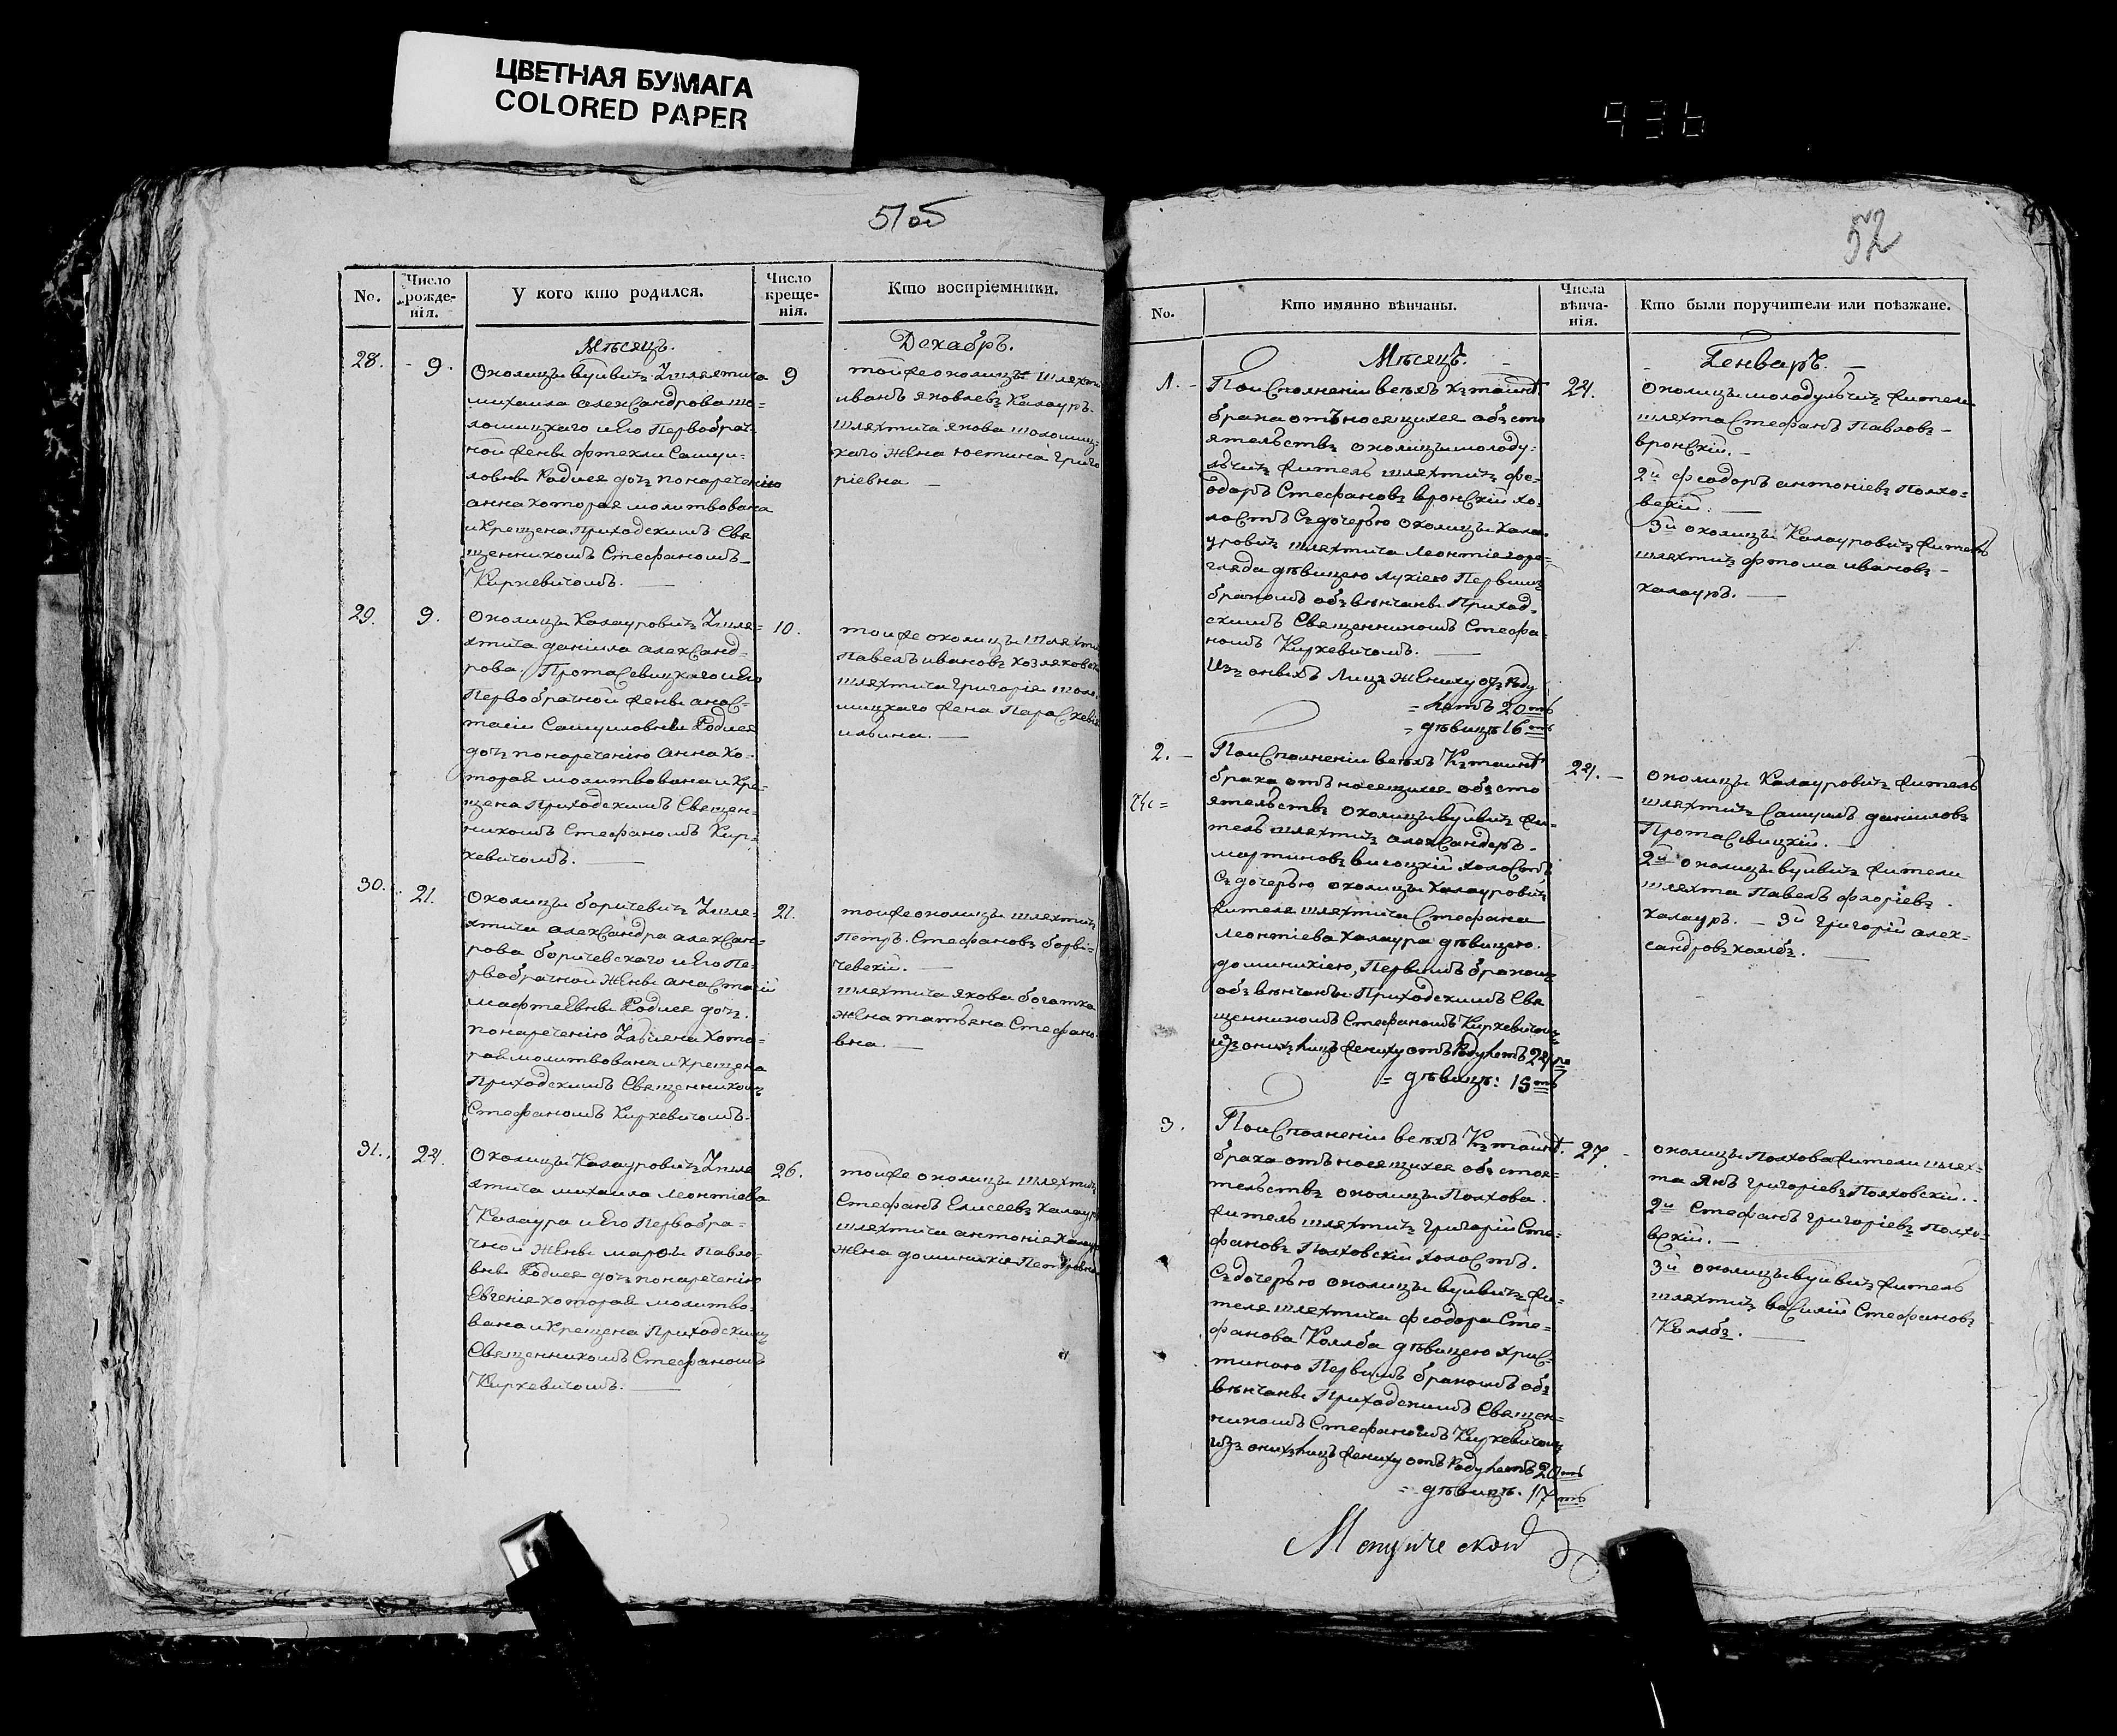 ЦВЕТНАЯ БУМАГА
COLORED PAPER
936
51об
No.
Число рожде-нія.
У кого кто родился.
Число креще-нія.
Кто воспріемники.
Мѣсяцъ.
Декабрь.
28.
9.
Околицы вуйвичъ Ушляхтича
михаила александрова шо=
ломицкаго и Его Первобрач=
ной жены фтекли Самуи=
ловны Родися дочъ понареченію
анна которая молитвована
и Крещена Приходскимъ Свя
щенникомъ Стефаномъ
Киркевичомъ.
9
тойже околицы шляхти
иванъ яковлевъ Калауръ.
шляхтича якова шоломиц=
каго жена юстина Григо
ріевна
29.
9.
Околицы Калауровичъ Ушля=
хтича даніила александ=
рова Протасевицкаго и Его
Первобрачной жены анас=
тасіи Самуиловны Родися
дочъ понареченію анна ко=
торая молитвована и Кре=
щена Приходскимъ Священ=
никомъ Стефаномъ Кир=
кевичомъ.
10.
тойже околицы шляхти
Павелъ ивановъ
шляхтича григорія шоло
мицкаго жена Параскевія
ильина.
30.
21.
Околицы боричевичъ Ушля=
хтича александра алексан=
рова боричевскаго и Его Пе=
рвобрачной жены анастасіи
мафтеевны Родися дочъ
понареченію Уліяна кото=
рая молитвована и крещена
Приходскимъ Священникомъ
Стефаномъ Киркевичомъ.
21.
тойже околицы шляхтичъ
Петръ Стефановъ бори=
чевскій.
шляхтича якова богатка
жена татяна Стефано
вна.
31.
24.
Околицы Калауровичъ Ушля
хтича михаила леонтіева
Калаура и Его Первобра=
чной жены маріи Павло=
вны Родися дочъ понареченію
Евгенія которая молитво=
вана и Крещена Приходскимъ
Священникомъ Стефаномъ
Киркевичомъ.
26.
тойже околицы шляхтичъ
Стефанъ Елисеевъ Калаур
шляхтича антонія Калаур
жена доминикія Петровна
52
No.
Кто имянно вѣнчаны.
Числа вѣнча-нія.
Кто были поручители или поѣзжане.
Мѣсяцъ.
Генварь.
1.
Поисполненіи всѣхъ Къ таинст.
брака отъносящихся объсто
ятельствъ околицы молоду=
льчичъ житель шляхтичъ фе=
одоръ Стефановъ вронскій хо=
лостъ Съ дочерью околицы Кала=
уровичъ шляхтича леонтія горе=
гляда дѣвицею лукіею Первимъ
бракомъ объвѣнчаны Приход=
скимъ Священникомъ Стефа=
номъ Киркевичомъ.
Изъ оныхъ Лицъ жениху отъ роду
= летъ 20ть
= дѣвицѣ 16ть
24.
околицы молодульчичъ жители
шляхта Стефанъ Павловъ
вронскій.
2й феодоръ антоніевъ Полхо=
вскій.
3й околицы Калауровичъ житель
шляхтичъ фтома ивановъ
Калауръ.
2.
Поисполненіи всѣхъ Къ таинст.
брака отъносящихся объсто
ятельствъ околицы вуйвичъ жи=
тель шляхтичъ александеръ
мартиновъ високій холостъ
Съ дочерью околицы Калауровичъ
жителя шляхтича Стефана
леонтіева Калаура дѣвицею
доминикіею, Первимъ бракомъ
объвѣнчаны Приходскимъ Свя
щенникомъ Стефаномъ Киркевичомъ
изъ онихъ лицъ жениху отъ Роду летъ 24ре
= дѣвицѣ: 15ть
24.
околицы Калауровичъ житель
шляхтичъ Самуилъ даніиловъ
Протасевицкій.
2й околицы вуйвичъ жители
шляхта Павелъ флоріевъ
Калауръ. 3й григорій алек=
сандровъ Колбъ.
3.
Поисполненіи всѣхъ Къ таинст.
брака отъносящихся объстоя=
тельствъ околицы Полхова
житель шляхтичъ григорій Сте=
фановъ Полховскій холостъ.
Съ дочерью околицы вуйвичъ жи=
теля шляхтича феодора Сте=
фанова Колба дѣвицею Хрис=
тиною Первимъ бракомъ объ
вѣнчаны Приходскимъ Священ=
никомъ Стефаномъ Киркевичомъ
изъ онихъ лицъ жениху отъ Роду летъ 20ть
= дѣвицѣ. 17ть
27.
околицы Полхова жители шлях=
та Янъ григоріевъ Полховскій.
2й Стефанъ григоріевъ Полхо=
вскій.
3й околицы вуйвичъ житель
шляхтичъ василій Стефановъ
Колбъ.